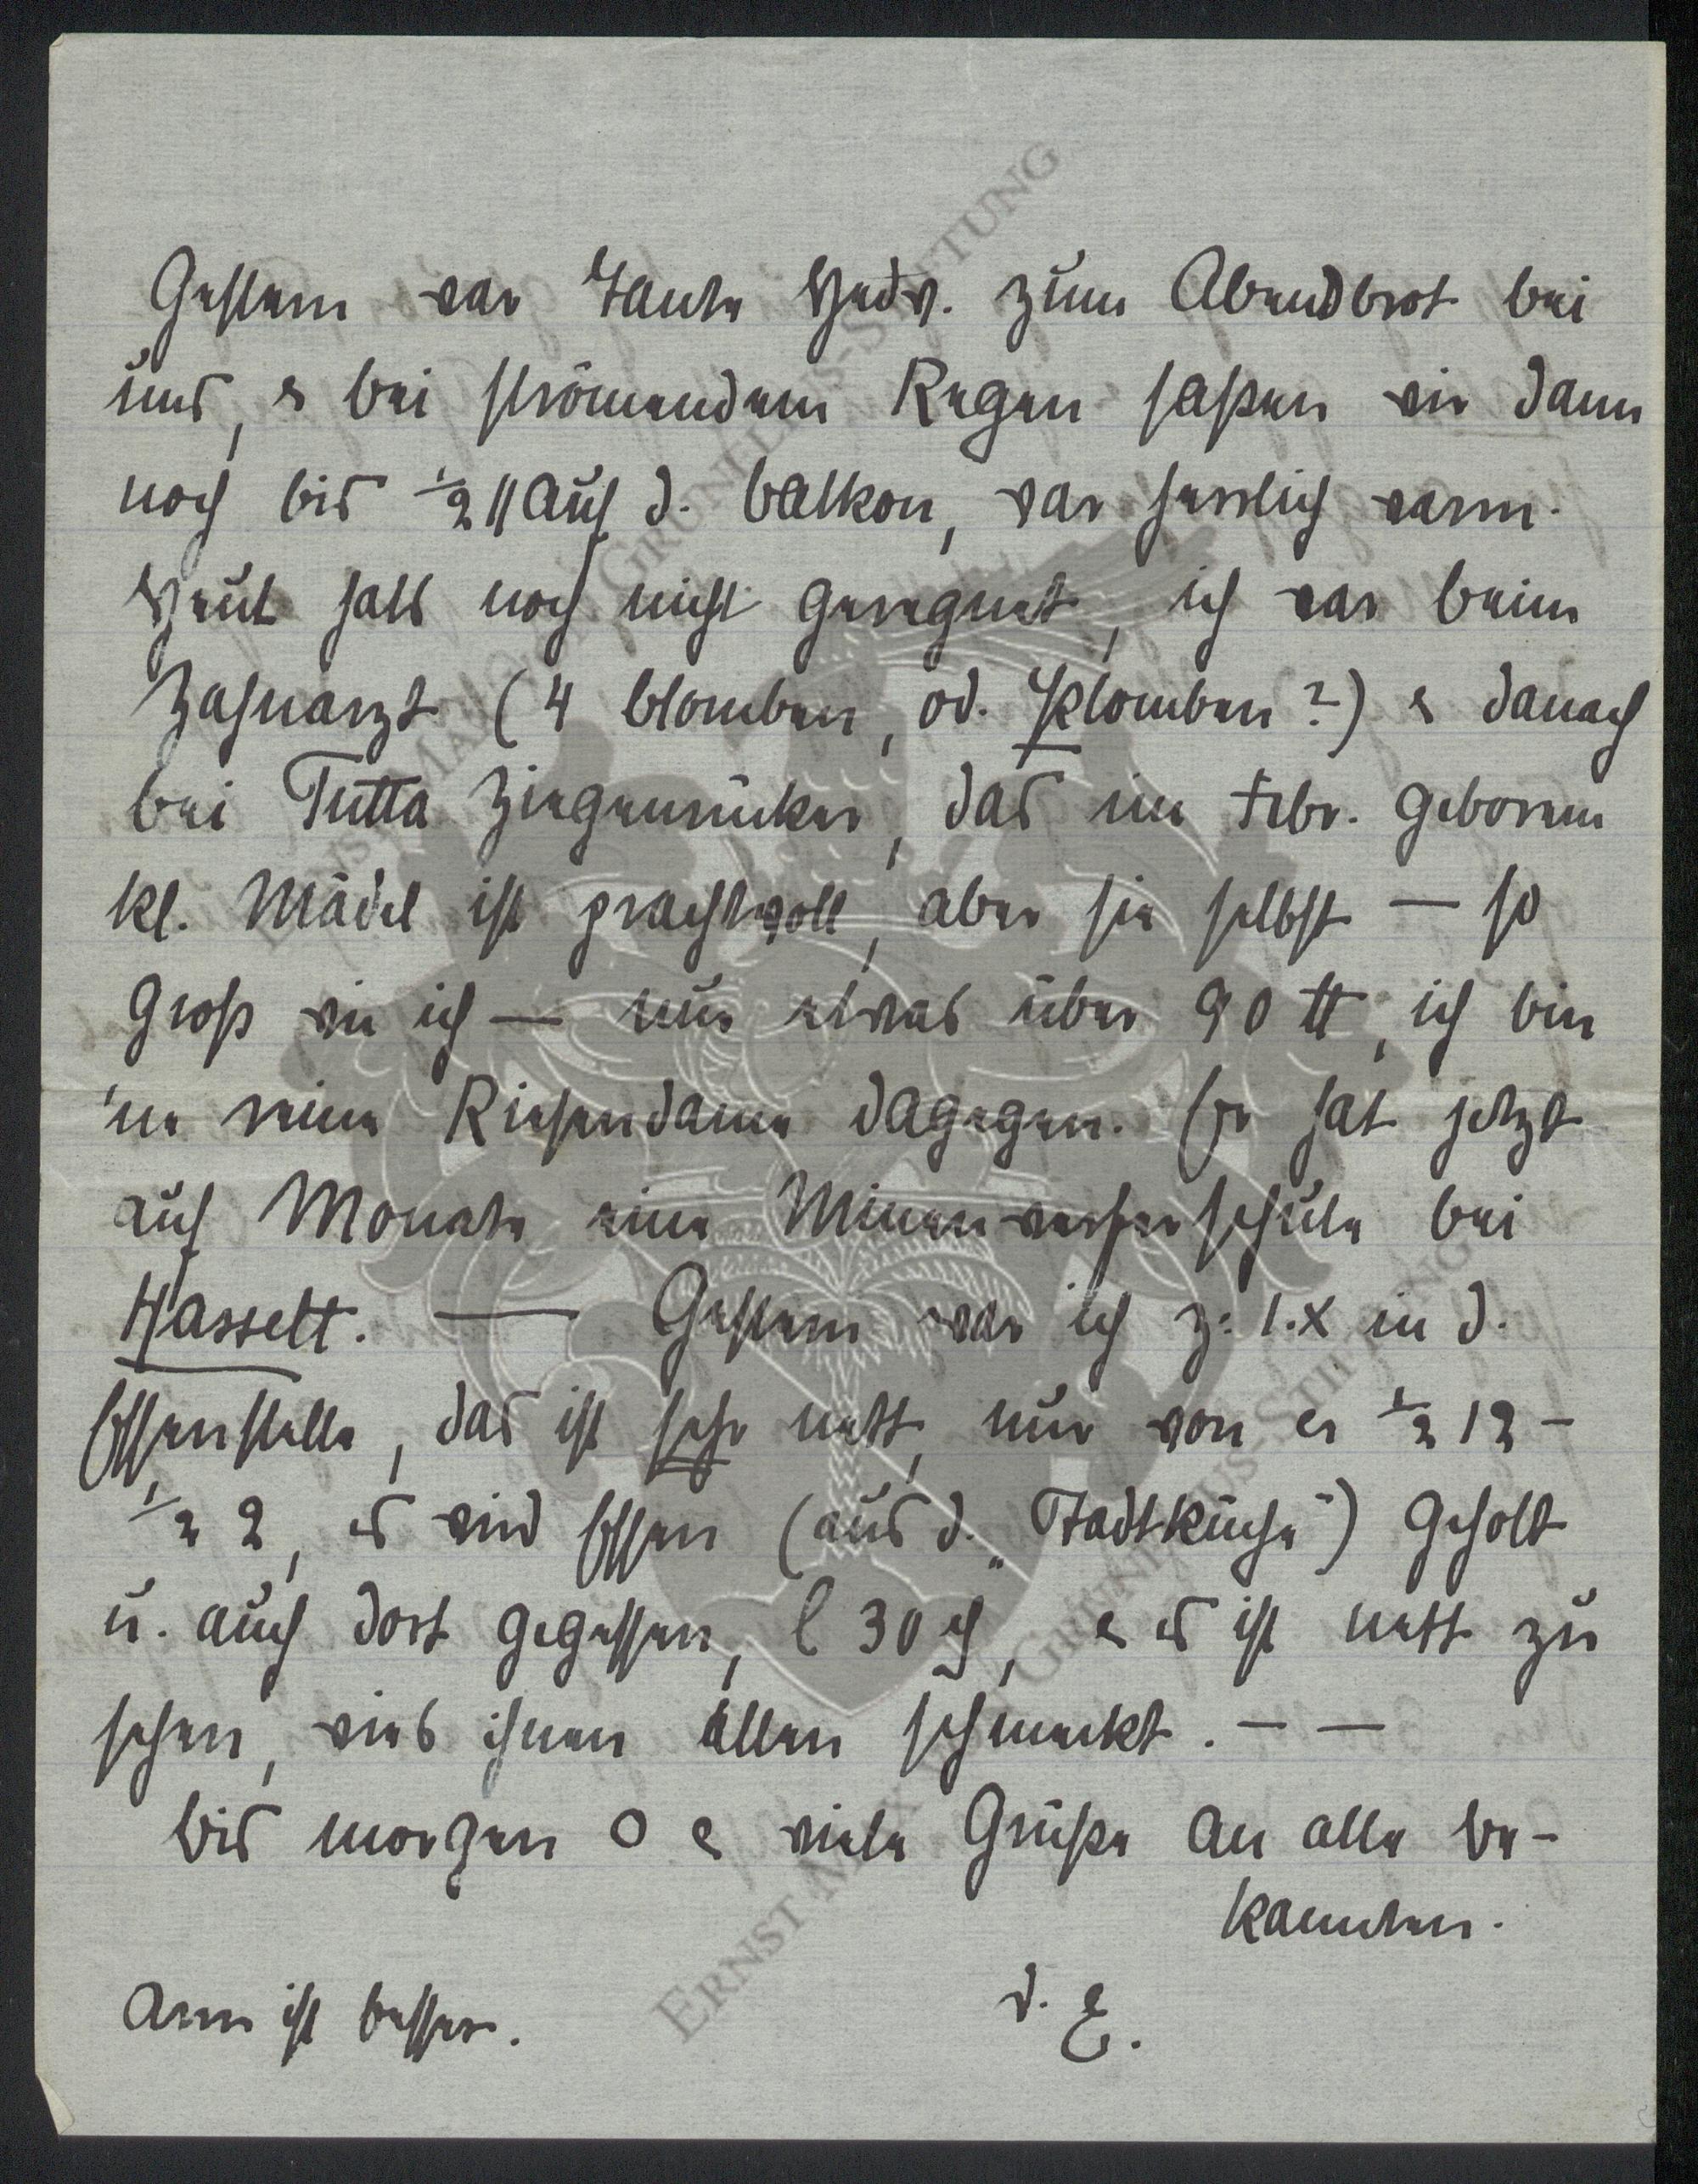 Gestern war Tante Hedw. zum Abendbrot bei
uns, & bei strömendem Regen saßen wir dann
noch bis ½ 11 auf d. Balkon, war herrlich warm.
Heut hats noch nicht geregnet, ich war beim
Zahnarzt (4 Blomben, od. Plomben?) & danach
bei Tutta Ziegenrücker, das im Febr. geborene
kl. Mädel ist prachtvoll, aber sie selbst — so
groß wie ich — nur etwas über 90 ℔, ich bin
'ne reine Riesendame dagegen. Er hat jetzt
auf Monate eine Minenwerferschule bei
Hasselt. — Gestern war ich z. 1. x in d.
Essenstelle, das ist sehr nett, nur von ½ 12 -
½ 2, es wird Essen (aus d. „Stadtküche") geholt
u. auch dort gegessen, 30 & es ist nett zu
sehen, wies ihnen allen schmeckt. — —
Bis morgen & viele Grüße an alle Be-
kannten.
Arm ist besser.
d. E.
ERNST MAX VON GRUNELIUS-STIFTUNG
ERNST MAX VON GRUNELIUS-STIFTUNG